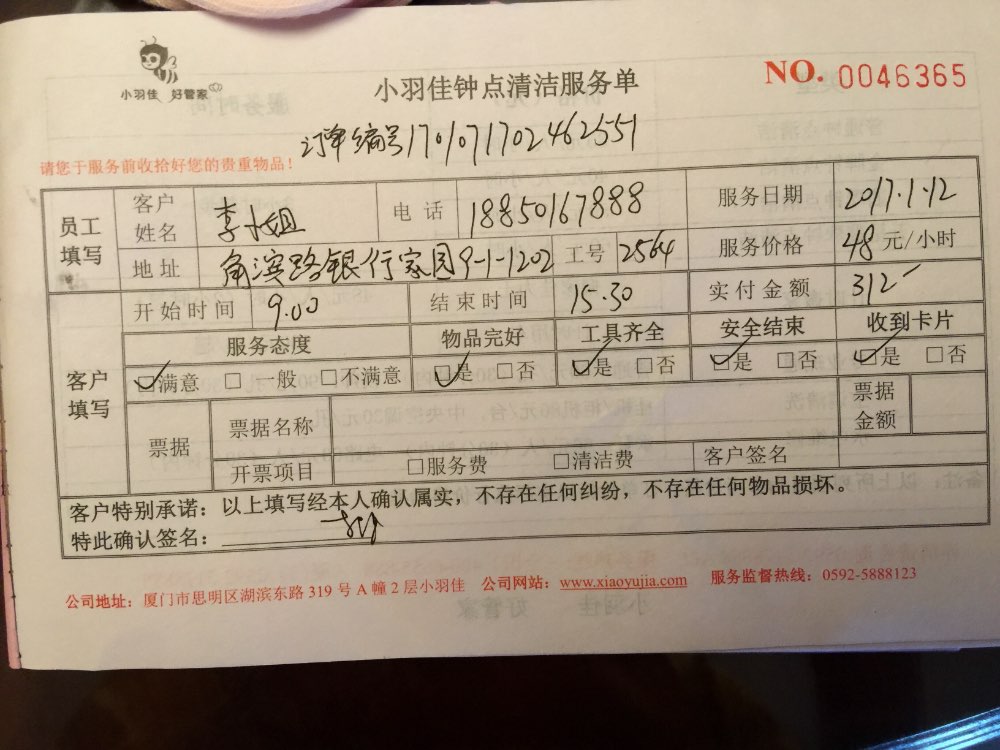 小羽佳 好管家
小羽佳钟点清洁服务单
NO. 0046365
订单编号1701071702462551
请您于服务前收拾好您的贵重物品！
员工填写 客户姓名 李小姐 电话 18850167888 服务日期 2017.1.12
地址 角滨路银行家园9-1-1202 工号 2564 服务价格 48 元/小时
开始时间 9.00 结束时间 15.30 实付金额 312
客户填写 服务态度 物品完好 工具齐全 安全结束 收到卡片
☑满意 □一般 □不满意 ☑是 □否 ☑是 □否 ☑是 □否 ☑是 □否
票据 票据名称 票据金额
开票项目 □服务费 □清洁费 客户签名
客户特别承诺：以上填写经本人确认属实，不存在任何纠纷，不存在任何物品损坏。
特此确认签名：
公司地址：厦门市思明区湖滨东路 319 号 A 幢 2 层小羽佳 公司网站：www.xiaoyujia.com 服务监督热线：0592-5888123